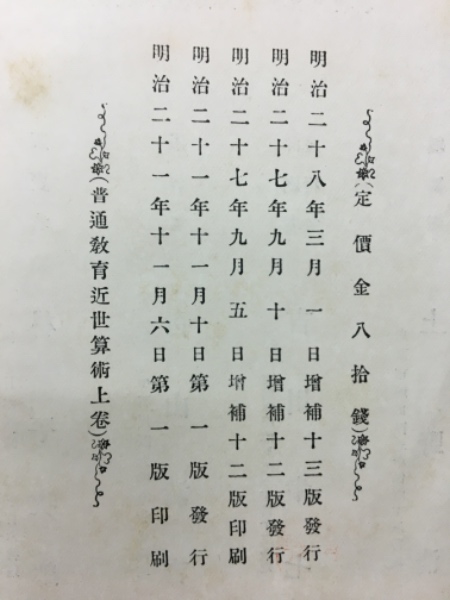 (定價金八拾錢)
明治二十八年三月一日增補十三版發行
明治二十七年九月十日增補十二版發行
明治二十七年九月五日增補十二版印刷
明治二十一年十一月十日第一版發行
明治二十一年十一月六日第一版印刷
(普通敎育近世算術上卷)